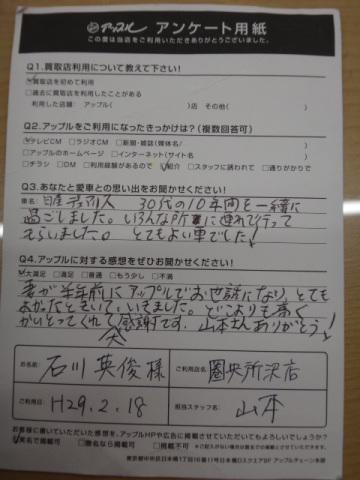 アップル アンケート用紙
この度は当店をご利用いただきありがとうございました。
Q1.買取店利用について教えて下さい!
買取店を初めて利用
□過去に買取店を利用したことがある
利用した店舗: アップル( )店 その他( )
Q2.アップルをご利用になったきっかけは?(複数回答可)
テレビCM □ラジオCM □新聞・雑誌(媒体名/ )
□アップルのホームページ □インターネット(サイト名 )
□チラシ □DM □利用経験があるので 紹介 □スタッフに誘われて □通りがかりで
Q3.あなたと愛車との思い出をお聞かせください!
車名: 日産 30代の10年間を一緒に
過ごしました。いろんな所に連れて行って
もらいました。とてもよい車でした!
Q4.アップルに対する感想をぜひお聞かせください!
大満足 □満足 □普通 □もう少し □不満
妻が半年前にアップルでお世話になり、とても
よかったときいて、いきました。どこよりも高く
かいとってくれて大感謝です。山本さんありがとう!
お名前: 石川 英俊 様
ご利用店名: 圏央所沢店
ご利用日: H29.2.18
担当スタッフ名: 山本
お客様に書いていただいた感想を、アップルHPや広告に掲載させていただいてもよろしいでしょうか?
実名で掲載可 □匿名なら掲載可 □掲載不可